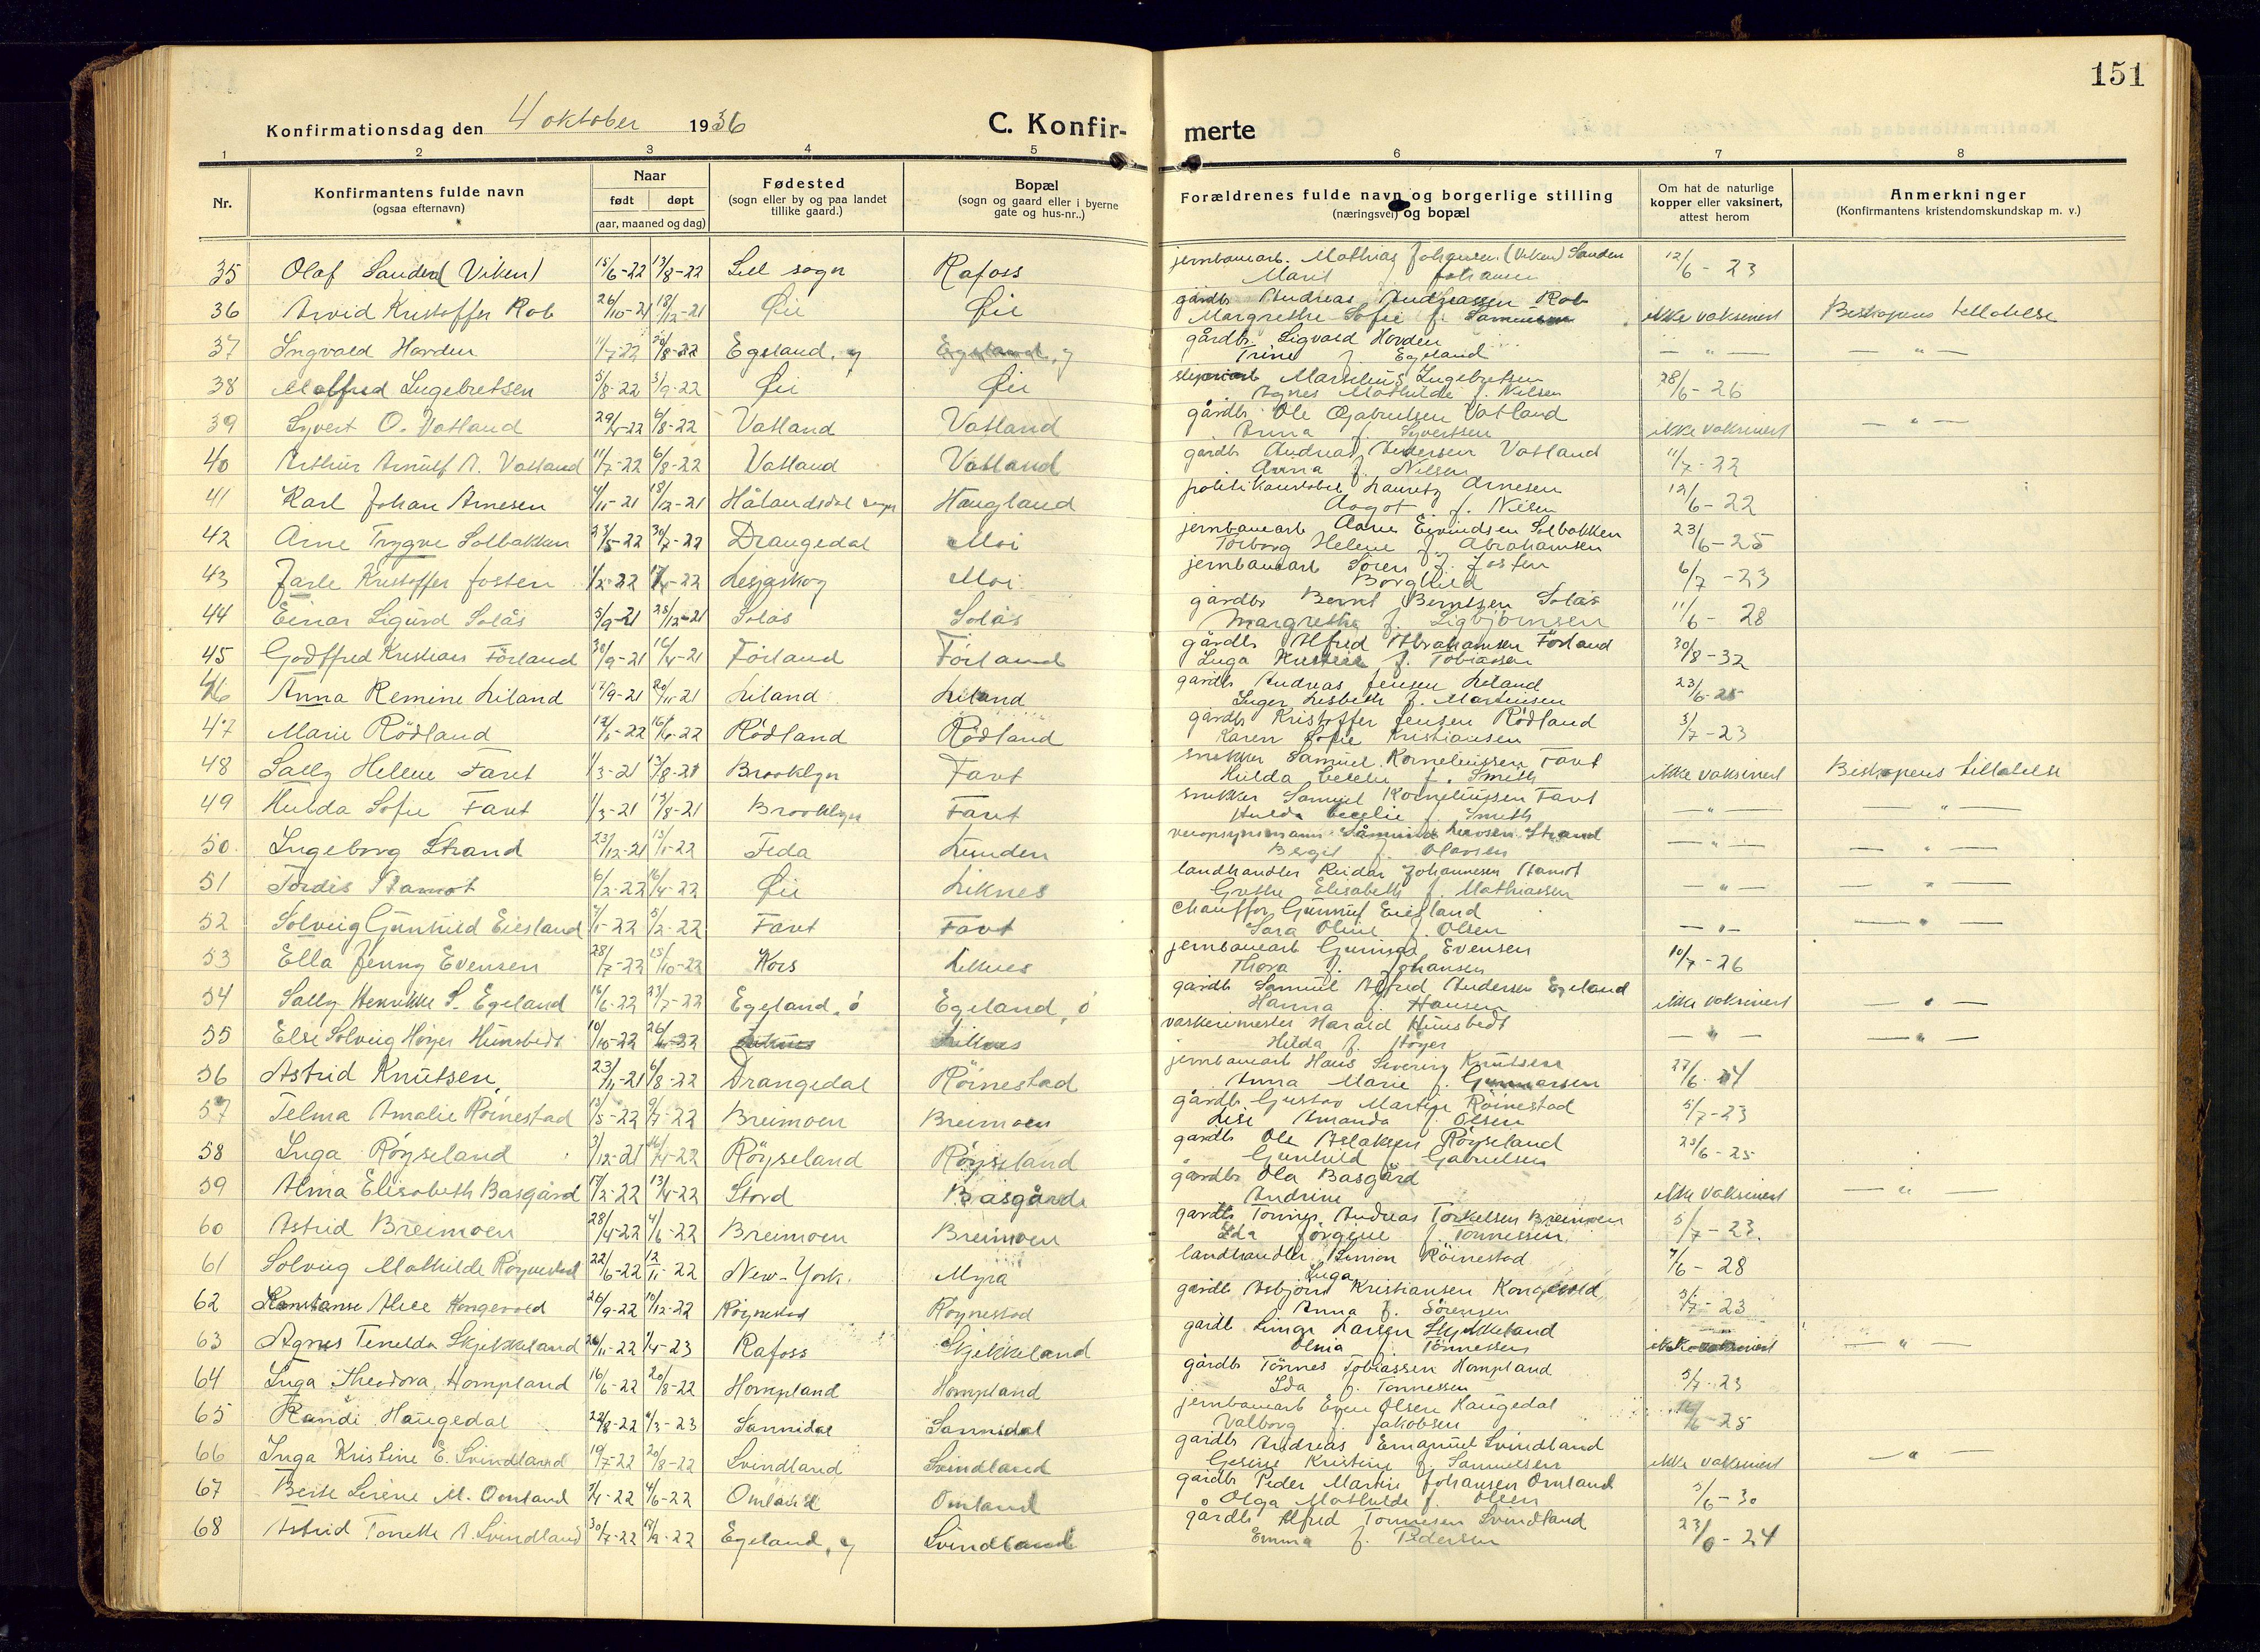 151
Konfirmationsdag den 4 oktober 1936 C. Konfir- merte
1 2 3 4 5 6 7 8
Nr.
Konfirmantens fulde navn
(ogsaa efternavn)
Naar
født døpt
(aar, maaned og dag)
Fødested
(sogn eller by og paa landet
tillike gaard.)
Bopæl
(sogn og gaard eller i byerne
gate og hus-nr..)
Forældrenes fulde navn og borgerlige stilling
(næringsvei) og bopæl
Om hat de naturlige
kopper eller vaksinert,
attest herom
Anmerkninger
(Konfirmantens kristendomskundskap m. v.)
35 Olaf Sanden (Viken) 15/6-22 13/8-22 Lill sogn Rafoss jernbanearb. Mathias Johansen (Viken) Sanden 12/6-23
Marit f. Johansen
36 Arvid Kristoffer Rob 26/10-21 18/12-21 Øie Øie gårdbr Andreas Andreassen Rob ikke vaksinert Biskopens tillatelse
Margrethe Sofie f. Samuelsen
37 Ingvald Hovden 1/7-22 20/8-22 Egeland, y Egeland, y gårdbr. Sigvald Hovden — " — — " —
Trine f. Egeland
38 Malfred Ingebretsen 5/8-22 3/9-22 Øie Øie Marselius Ingebretsen 28/6-26
Agnes Mathilde f. Nilsen
39 Syvert O. Vatland 29/4-22 6/8-22 Vatland Vatland gårdbr. Ole Gabrielsen Vatland ikke vaksinert — " —
Anna f. Syvertsen
40 Arthur Arnulf A. Vatland 11/7-22 6/8-22 Vatland Vatland gårdbr Andreas Andersen Vatland 11/7-22
Anna f. Nilsen
41 Karl Johan Arnesen 4/11-21 18/12-21 Hålandsdal sogn Haugland politikonstabel Lauritz Arnesen 12/6-22
Aagot f. Nilsen
42 Arne Trygve Solbakken 23/5-22 30/7-22 Drangedal Moi jernbanearb Aanen Eivindsen Solbakken 23/6-25
Torborg Helene f. Abrahamsen
43 Jarle Kristoffer Josten 1/2-22 Lesjaskog Moi jernbanearb Sören J. Josten 6/7-23
Borghild
44 Einar Sigurd Solås 5/9-21 28/12-21 Solås Solås gårdbr Bernt Berntsen Solås 11/6-28
Margrethe f. Sigbjörnsen
45 Godtfred Kristian Förland 30/9-21 Förland Förland gårdbr Alfred Abrahamsen Förland 30/8-32
Inga Kristine f. Tobiassen
46 Anna Remine Liland 17/9-21 20/11-21 Liland Liland gårdbr Andreas Jensen Liland 23/6-25
Inger Lisbeth f. Martinsen
47 Marie Rödland 16/6-22 Rödland Rödland gårdbr Kristoffer Jensen Rödland 3/7-23
Karen Sofie Kristiansen
48 Sally Helene Favt 1/3-21 13/8-21 Brooklyn Favt snekker Samuel Korneliussen Favt ikke vaksinert Biskopens tillatelse
Hulda Cecelie f. Smith
49 Hulda Sofie Favt 1/3-21 13/8-21 Brooklyn Favt snekker Samuel Korneliussen Favt — " — — " —
Hulda Cecelie f. Smith
50 Ingeborg Strand 23/12-21 Feda Lunden veiopsynsmann Strand — " — — " —
Bergit f. Olavsen
51 Tordis Stamöt 6/2-22 16/4-22 Øie Liknes landhandler Reidar Johannesen Stamöt — " — — " —
Grethe Elisabeth f. Mathiassen
52 Solveig Gunhild Eiesland 5/2-22 Favt Favt Chauffør Gunnuf Eiesland — " — — " —
Sara Oline f. Olsen
53 Ella Jenny Evensen 28/7-22 15/10-22 Kors Liknes jernbanearb Gunnar Evensen 10/7-26
Thora f. Johansen
54 Sally Henrikke S. Egeland 16/6-22 23/7-22 Egeland, ö Egeland, ö gårdbr Samuel Alfred Andersen Egeland ikke vaksinert — " —
Hanna f. Hansen
55 Else Solveig Höyer Hunsbedt 10/10-22 Liknes Liknes vaskerimester Harald Hunsbedt — " — — " —
Hilda f. Höyer
56 Astrid Knutsen 23/11-21 6/8-22 Drangedal Röinestad jernbanearb Hans Severin Knutsen
Anna Marie f. Gunnarsen
57 Telma Amalie Röinestad 9/7-22 Breimoen Breimoen gårdbr Gustav Martin Röinestad 5/7-23
Lise Amanda f. Olsen
58 Inga Röyseland 3/12-21 16/4-22 Röyseland Röyseland gårdbr Ole Aslaksen Röyseland 23/6-25
Gunhild f. Gabrielsen
59 Alma Elisabeth Basgård 13/4-22 Stord Basgård gårdbr Ola Basgård ikke vaksinert — " —
Andrine
60 Astrid Breimoen 28/4-22 4/6-22 Breimoen Breimoen gårdbr Tönnes Andreas Torkelsen Breimoen 5/7-23.
Ida Jörgine f. Tönnessen
61 Solveig Mathilde Röynestad 22/6-22 12/11-22 New-York. Myra landhandler Simon Röinestad 7/6-28
Inga
62 Konstanse Alice Kongevold 26/9-22 10/12-22 Röynestad Röynestad gårdbr Asbjörn Kristiansen Kongevold 5/7-23
Anna f. Sörensen
63 Agnes Tenelda Skjekkeland 26/11-22 1/4-23 Rafoss Skjekkeland gårdb Larsen Skjekkeland ikke vaksinert — " —
Olnia f. Tönnessen
64 Inga Theodora Hompland 16/6-22 20/8-22 Hompland Hompland gårdbr Tönnes Tobiassen Hompland 5/7-23
Ida f. Tönnessen
65 Randi Haugedal 22/8-22 Sannidal Sannidal jernbanearb Even Olsen Haugedal
Valborg f. Jakobsen
66 Inga Kristine E. Svindland 19/7-22 20/8-22 Svindland Svindland gårdbr Andreas Emanuel Svindland ikke vaksinert — " —
Gesine Kristine f. Samuelsen
67 Berte Serene M. Omland 4/6-22 Omland Omland gårdbr Peder Martin Johansen Omland 5/6-30
Olga Mathilde f. Olsen
68 Astrid Tonette A. Svindland 30/7-22 17/9-22 Egeland, y Svindland gårdbr Alfred Tönnesen Svindland 23/6-24
Emma f. Pedersen